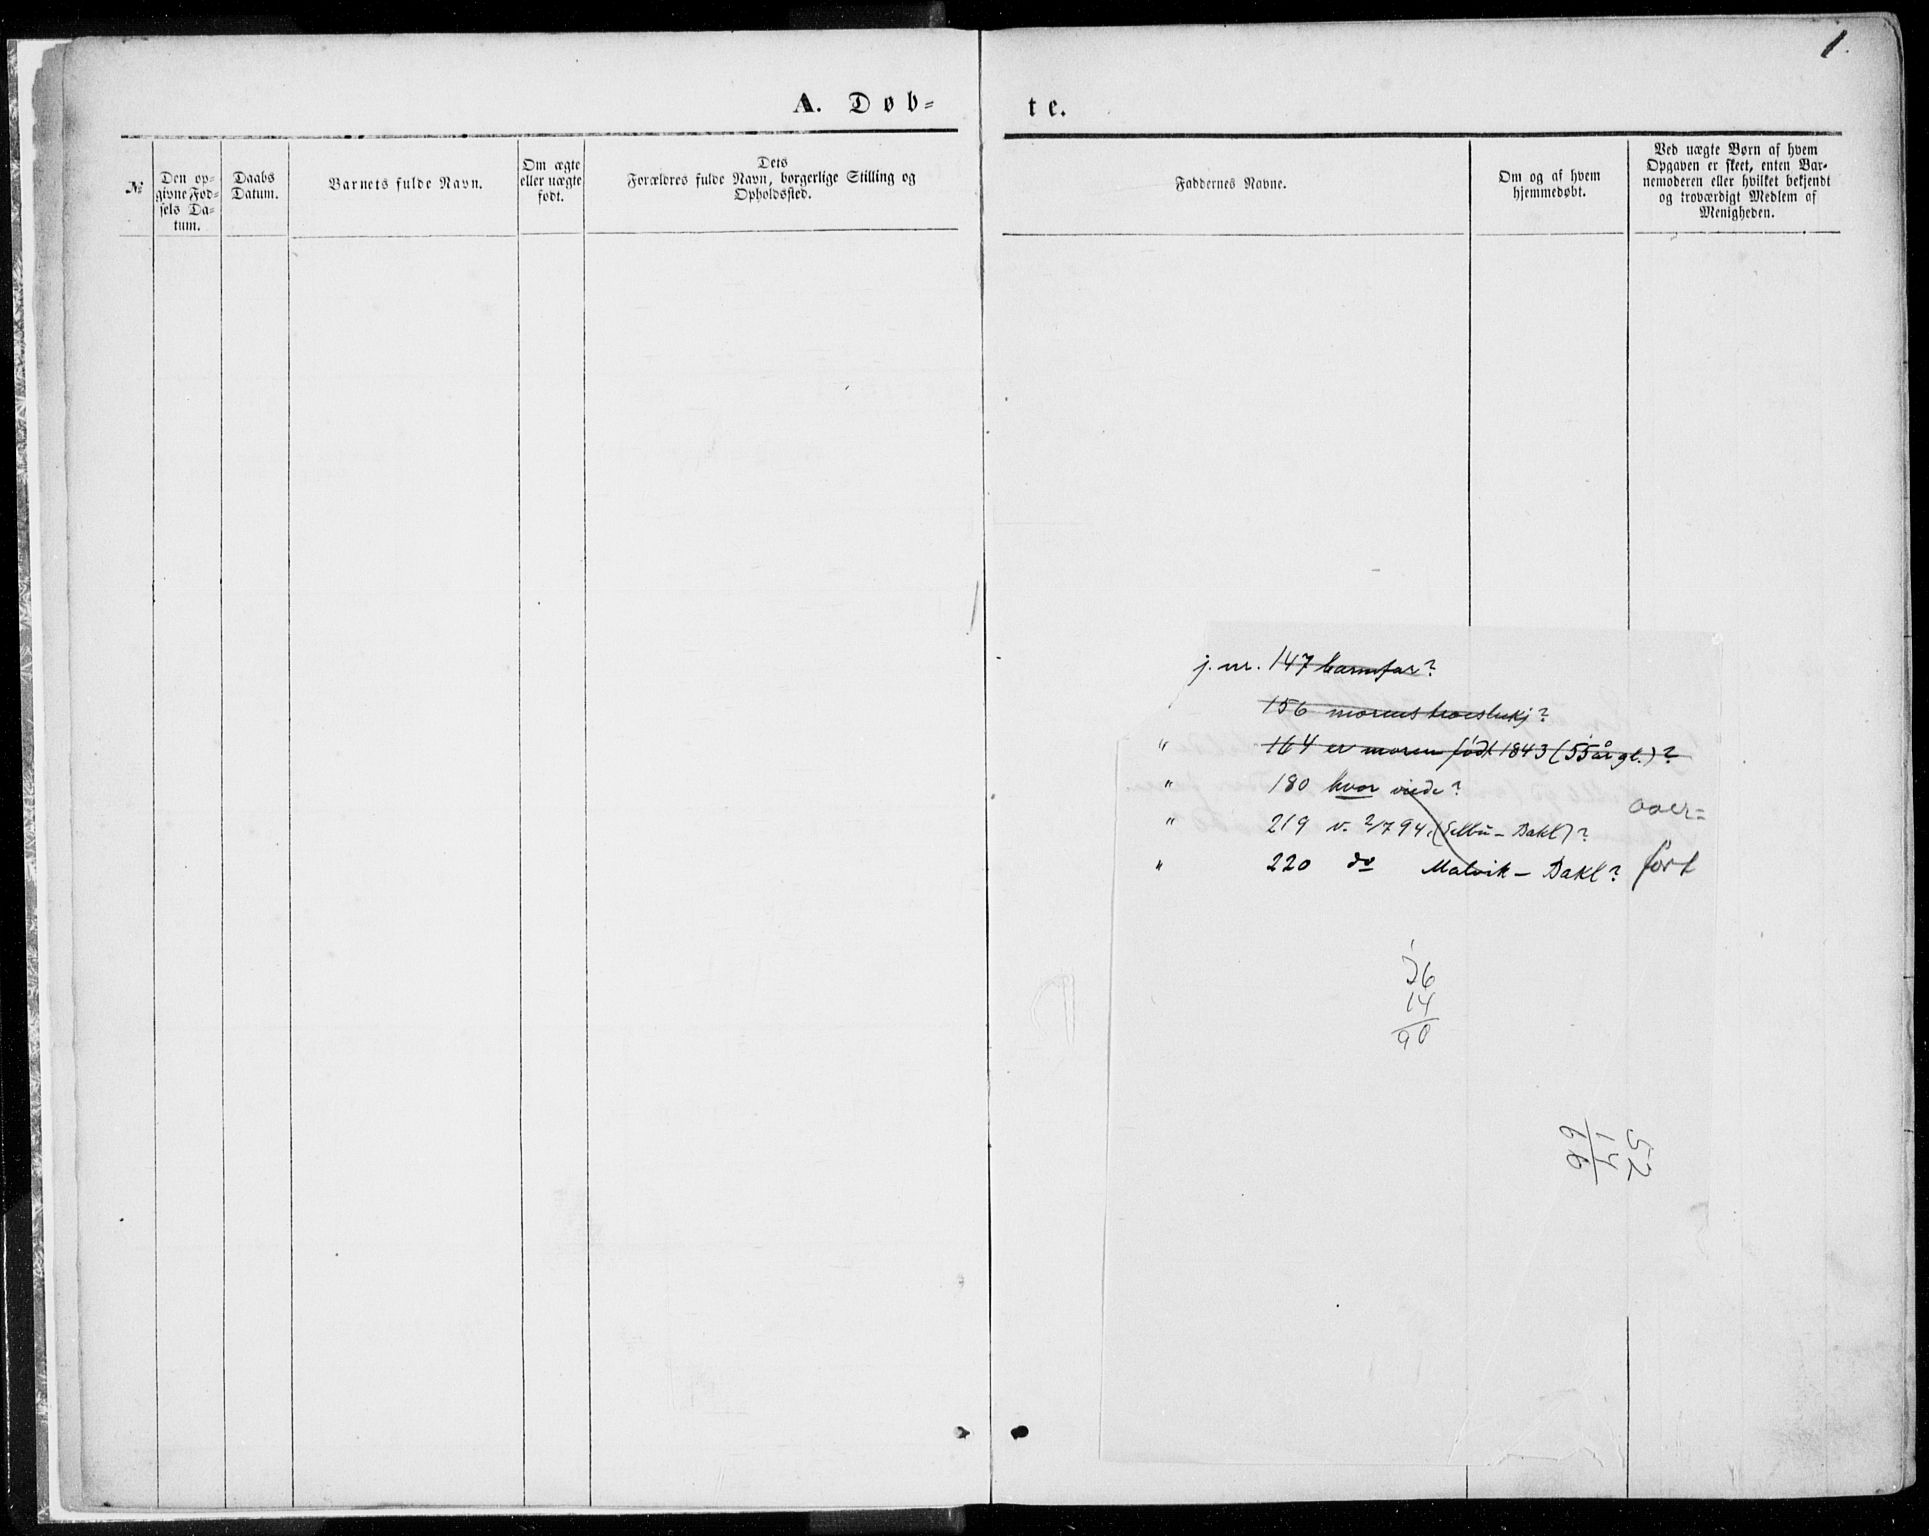 1.
A. Døb-
te.
№
Den op-
givne Fød-
sels Da-
tum.
Daabs
Datum.
Barnets fulde Navn.
Om ægte
eller uægte
født.
Dets
Forældres fulde Navn, borgerlige Stilling og
Opholdssted.
Faddernes Navne.
Om og af hvem
hjemmedøbt.
Ved uægte Børn af hvem
Opgaven er skeet, enten Bar-
nemoderen eller hvilket bekjendt
og troværdigt Medlem af
Menigheden.
j. nr. 147 barnefar?
156 morens
" 164 er moren født 1843 (55 år gl.)?
" 180 hvor viede?
" 219 v. 2/7 94, (Selbu - Bakl)?
" 220 do Malvik - Bakl?
over=
ført
76
14
90
52
14
66